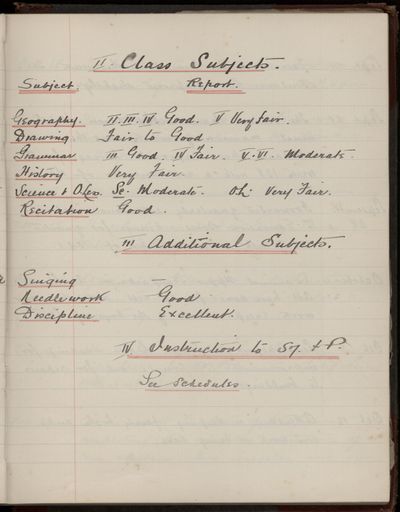 II. Class Subjects.
Subject. Report.
Geography. II. III. IV. Good. V Very Fair.
Drawing Fair to Good.
Grammar III Good. IV Fair. V. VI. Moderate.
History Very Fair.
Science & Ob. Sc. Moderate. Ob. Very Fair.
Recitation Good.
III Additional Subjects.
Singing —
Needlework Good
Discipline Excellent.
IV Instruction to &
See Schedules.